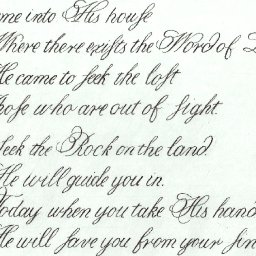 me into His house
Where there exists the Word of
He came to seek the lost
hose who are out of sight.
Seek the Rock on the land.
He will guide you in.
Today when you take His hand
He will save you from your sin